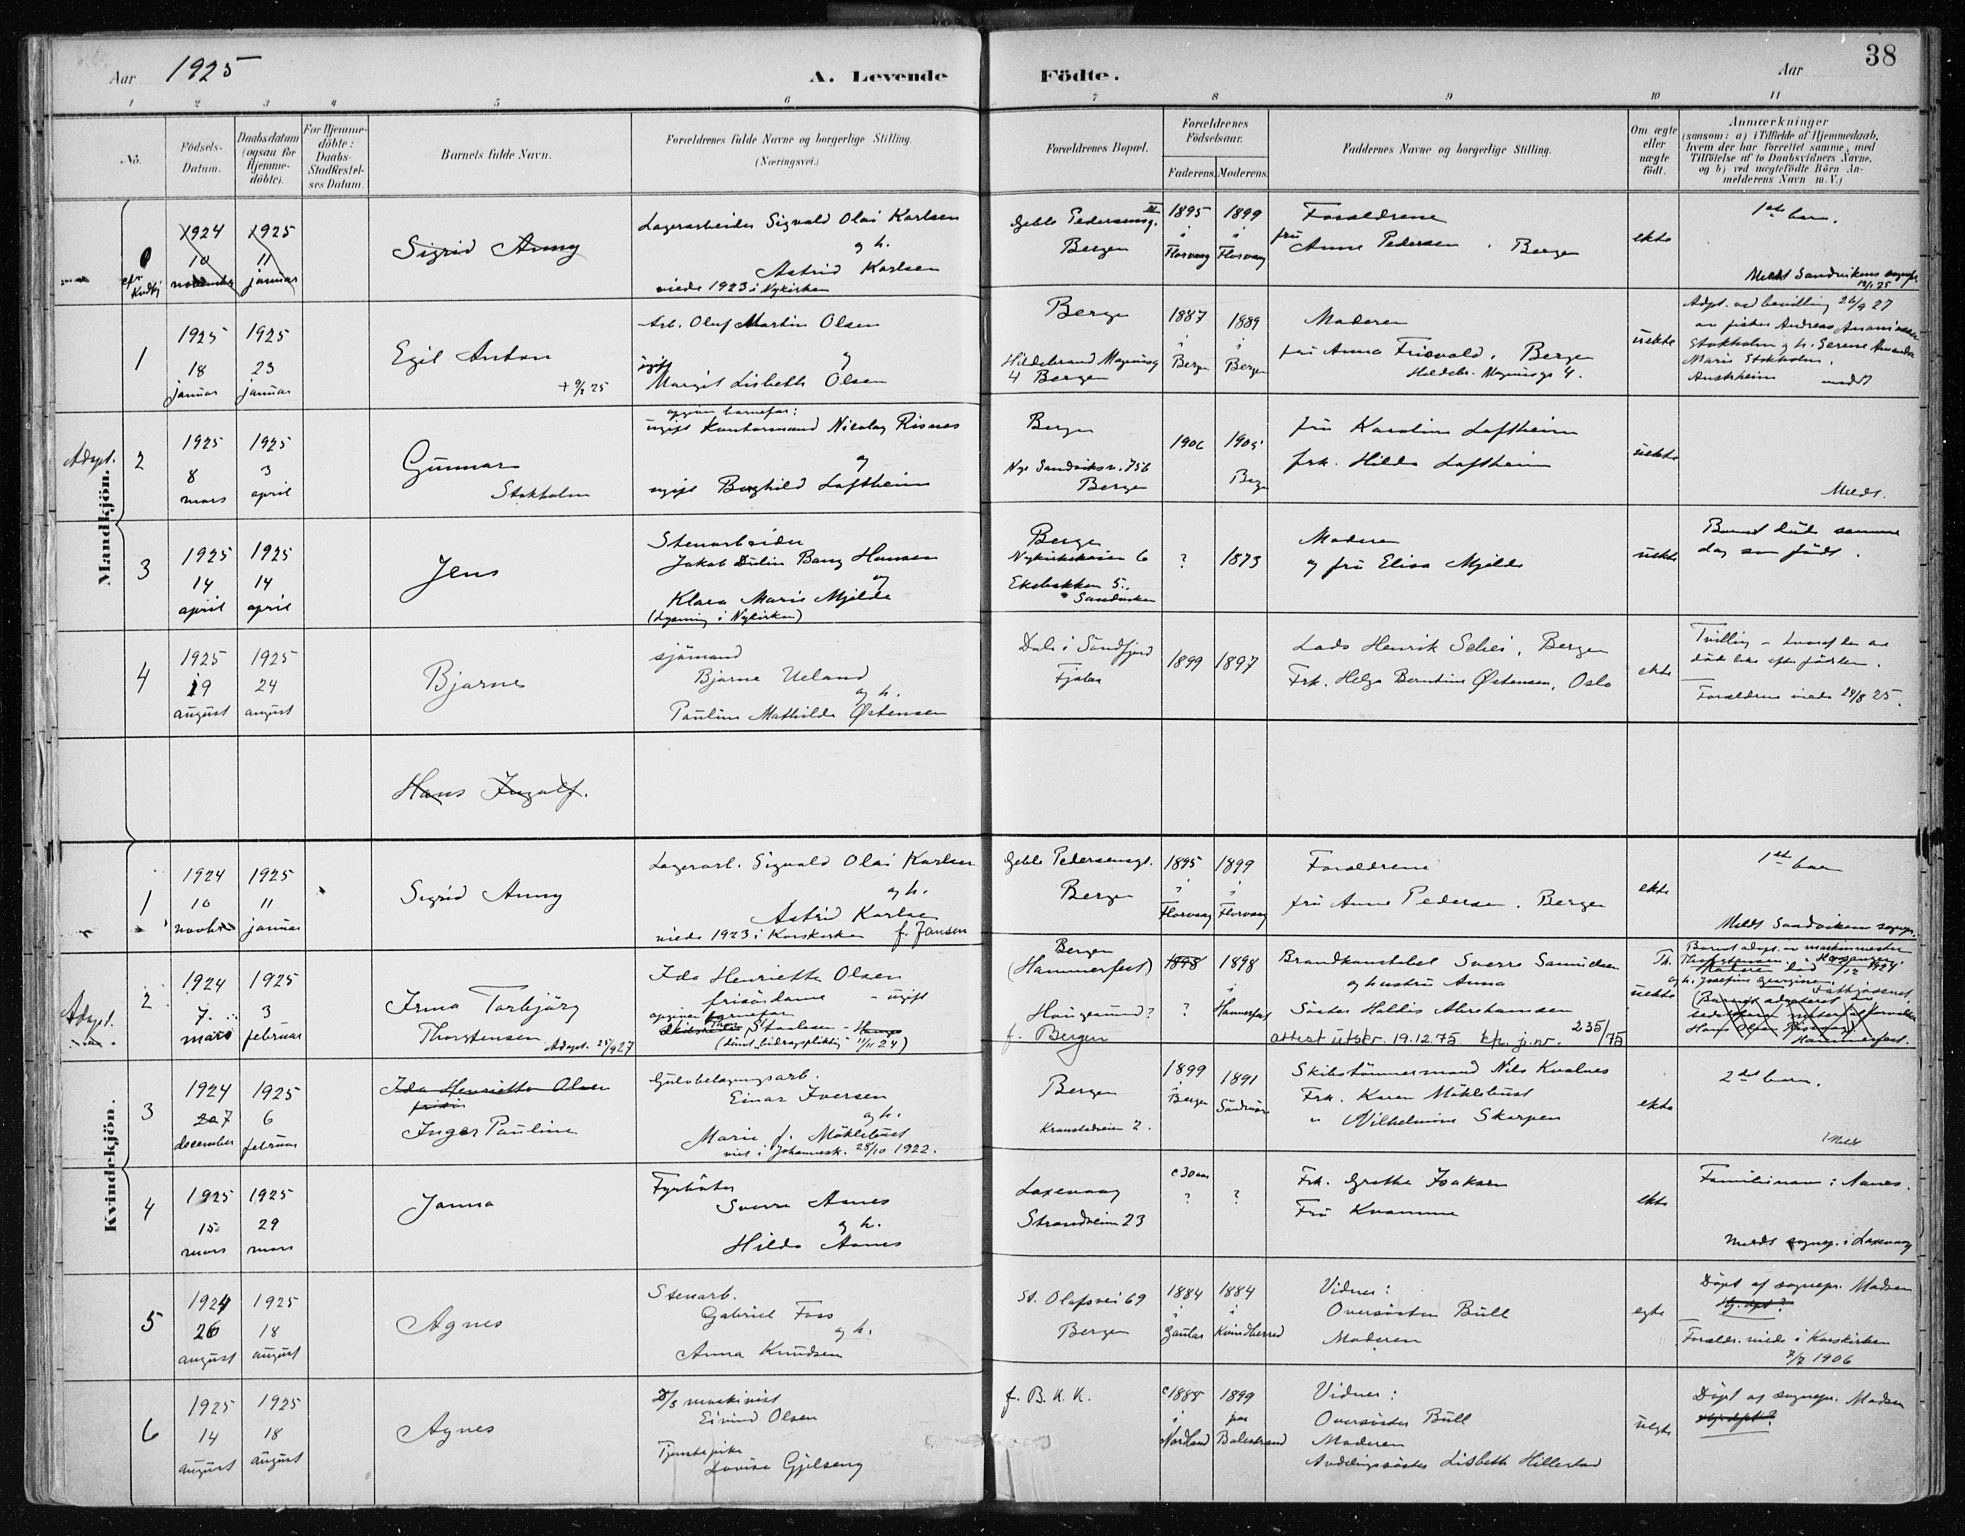 38
Aar 1925 A. Levende Födte. Aar
1 2 3 4 5 6 7 8 9 10 11
No.
Födsels-Datum.
Daabsdatum (ogsaa for Hjemme-döbte).
For Hjemme-döbte: Daabs-Stadfæstel-ses Datum.
Barnets fulde Navn.
Forældrenes fulde Navne og borgerlige Stilling.
(Næringsvei.)
Forældrenes Bopæl.
Forældrenes Födselsaar.
Faderens. Moderens.
Faddernes Navne og borgerlige Stilling.
Om ægte eller uægte födt.
Anmærkninger
(saasom: a) i Tilfælde af Hjemmedaab,
hvem der har forrettet samme, med
Tilföielse af to Daabsvidners Navne,
og b) ved uægtefödte Börn An-
melderens Navn m. V.)
Mandkjön.
1924 10 november
1925 11 januar
Sigrid Anny
Lagerarbeider Sigvald Olai Karlsen
og h.
Astrid Karlsen
viede 1923 i Nykirken
Geble Pedersensg.
Bergen
1895 i Florvaag
1899 i Florvaag
Forældrene
fru Anne Pedersen, Bergen
ekte
1ste barn.
Meldt Sandvikens sognepr.
1
1925 18 januar
1925 23 januar
Egil Anton
Arb. Oluf Martin Olsen
og
ugift Margit Lisbeth Olsen
Bergen
Hildebrand Magnusg
4 Bergen
1887 i Bergen
1889 i Bergen
Moderen
fru Anna Frisvold, Bergen
Hildebr. Magnusgt 4.
uekte
Adpt. ved bevilling 26/9 27
av fisker Andreas
Stokholm og h. Serene Amanda
Marie Stokholm.
Austrheim meldt
Adopt.
2
1925 8 mars
1925 3 april
Gunnar
Stokholm
opgiven barnefar:
ugift Kontormand Nicolay Risnes
og
ugift Borghild Loftheim
Bergen
Nye Sandviksv. 75b
Bergen
1906
1905 Bergen
fru Karoline Loftheim
frk. Hilda Loftheim
uekte
Meldt.
3
1925 14 april
1925 14 april
Jens
Stenarbeider
Jakob Bang Hansen
og
Klara Marie Mjelde
(Lysning i Nykirken)
Bergen
Nykirkekaien 6
Ekebakken 5.
Sandviken
?
1873
Moderen
og fru Elisa Mjelde
uekte
Barnet döde samme
dag som födt.
4
1925 19 august
1925 24 august
Bjarne
sjömand
Bjarne Ueland
og h.
Pauline Mathilde Østensen
Dale i Söndfjord
Fjaler
1899
1897
Lods Henrik Schei, Bergen
Frk. Helga Berntine Østensen, Oslo
ekte
Tvilling - hvoraf den ene
döde like efter födselen.
Forældrene viede 24/8 25.
Hans Ingolf.
Kvindekjön.
1
1924 10 novbr
1925 11 januar
Sigrid Anny
Lagerarb. Sigvald Olai Karlsen
og h.
Astrid Karlsen
viede 1923 i Korskirken f. Jansen
Geble Pedersensgt.
Bergen
1895 i Florvaag
1899 i Florvaag
Forældrene
fru Anne Pedersen, Bergen
ekte
1ste barn
Meldt Sandviken sognepr.
Adopt.
2
1924 7. mars
1925 3 februar
Irma Torbjörg
Thorstensen
Adopt. 24/9 27
Ida Henriette Olsen
frisördame - ugift
opgiven barnefar
Staalesen
(dömt bidragspliktig 11/11 24)
Bergen
(Hammerfest)
Haugesund?
f. Bergen
1898 ?
1898 i Hammerfest
Brandkonstabel Sverre Samuelsen
og hustru Anna
Söster Haldis Abrahamsen
attest utskr. 19.12.75 kp. j.nr. 235/75
uekte
Barnet adopt. av maskinmester
3
1924 7 december
1925 6 februar
Ida Henriette Olsen
Inger Pauline
Gulvbelægningsarb.
Einar Iversen
og h.
Marie f. Möklebust
viet i Johannesk. 28/10 1922.
Bergen
Kronstadveien 2.
1899 i Bergen
1891
Skibstömmermand Nils Kvalnes
Frk. Karen Möklebust
" Vilhelmine Skorpen
ekte
2det barn.
Meldt
4
1925 15 mars
1925 29 mars
Janna
Fyrböter
Sverre Aanes
og h.
Hilda Aanes
Laxevaag
Strandveien 23
c 30 aar ?
?
Frk. Grethe Isaksen
Fru Kvamme
ekte
Familienavn: Aanes.
Meldt sognepr. i Laxevaag
5
1924 26 august
1925 18 august
Agnes
Stenarb.
Gabriel Foss
og h.
Anna Knudsen
St. Olafsvei 69
Bergen
1884 i Gaular
1884 i Kvindherred
Vidner:
Oversöster Bull
Moderen
egte
Döpt af sognepr. Madsen
Hj. dpt?
Foreldr. viede i Korskirken
7/7 1906
6
1925 14 august
1925 18 august
Agnes
D/S maskinist
Eivind Olsen
Tjenestepike
Lovise Gjelseng
f. B. K. K.
c 1888 i Nordland
1899 paa Balestrand
Vidner:
Oversöster Bull
Moderen
Avdelingssöster Lisbeth Hillestad
uegte
Döpt af sognepr. Madsen
Hj. döpt?